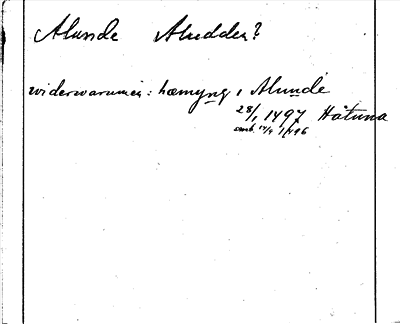 Alunde Aludden?
widerwarumen: hæmyng i Alunde
28/1 1497 Håtuna
1496